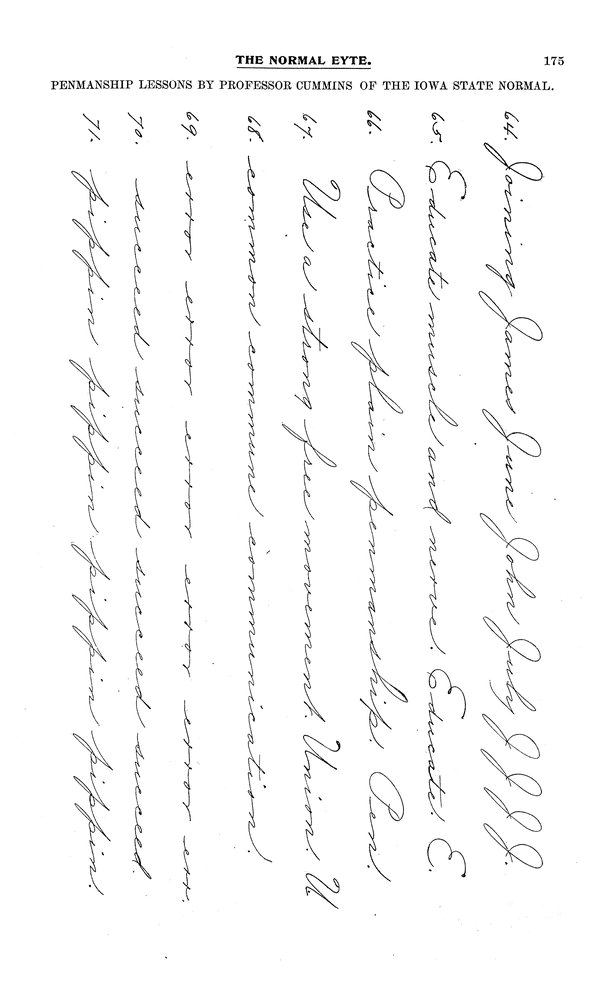 THE NORMAL EYTE.
175
PENMANSHIP LESSONS BY PROFESSOR CUMMINS OF THE IOWA STATE NORMAL.
64. Joining James June John July J J J J.
65. Educate muscle and nerve. Educate. E.
66. Practice plain penmanship. Pen.
67. Use a strong free movement. Union. U
68. common commune communication.
69. error error error error error err.
70. succeed succeed succeed succeed.
71. pippin pippin pippin pippin.